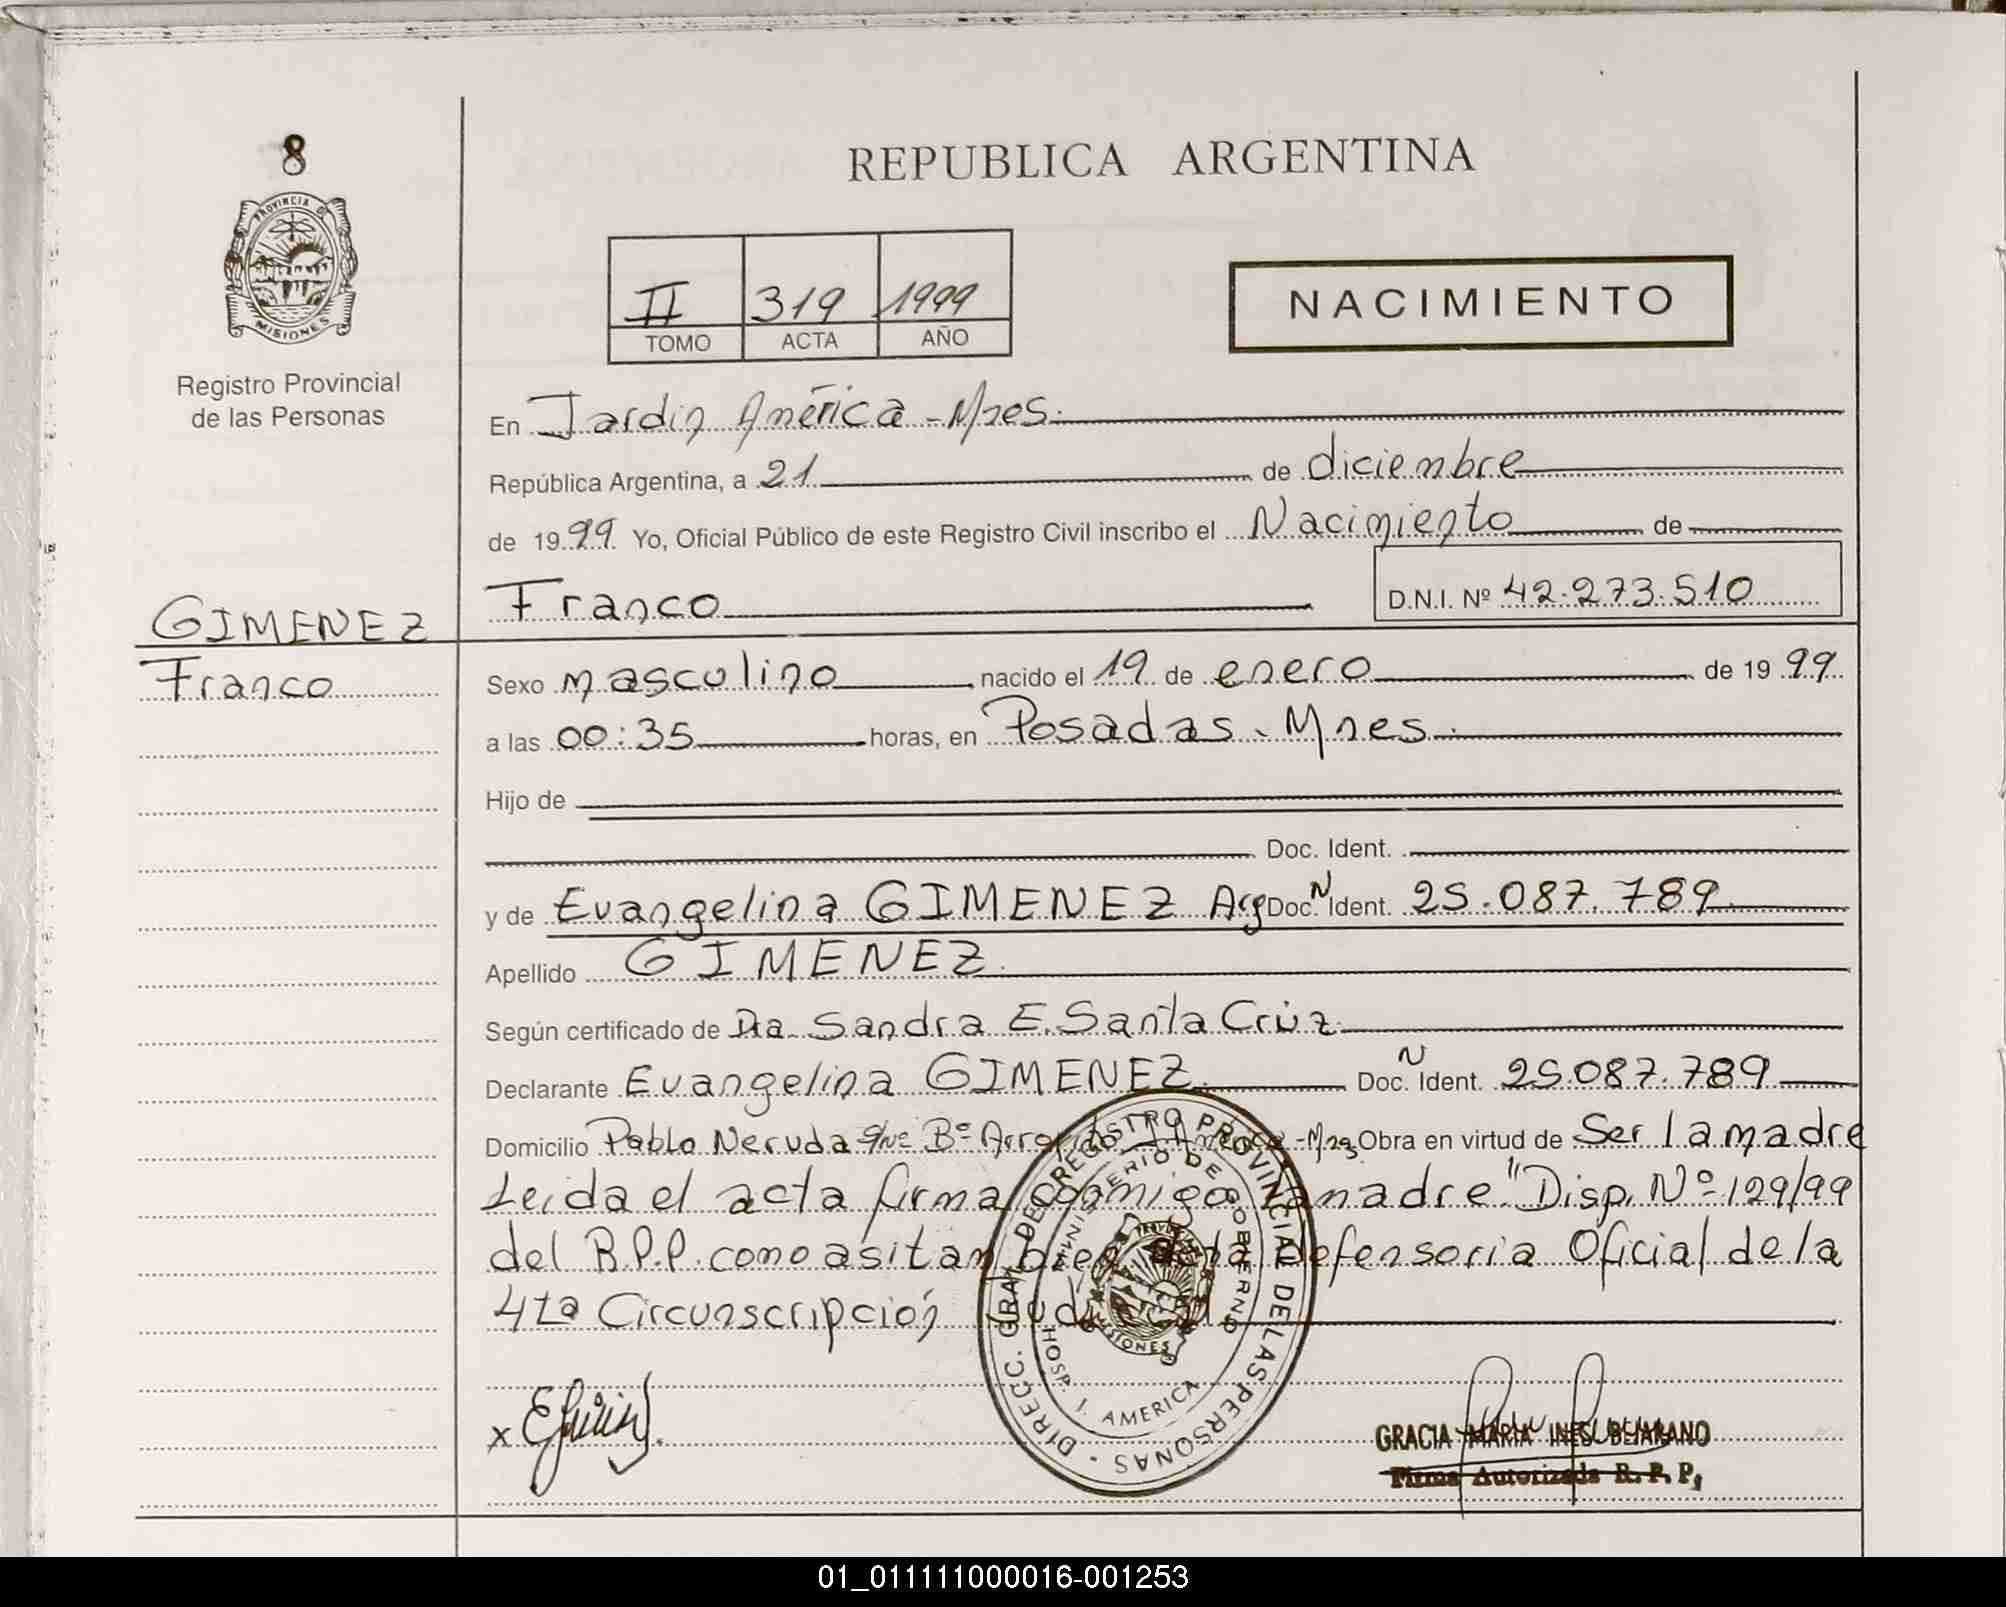 8
REPUBLICA ARGENTINA
PROVINCIA D
MISIONES
Registro Provincial
de las Personas
II 319 1999
TOMO ACTA AÑO
NACIMIENTO
En Jardín América - Mnes.
República Argentina, a 21 de diciembre
de 1999 Yo, Oficial Público de este Registro Civil inscribo el Nacimiento de
Franco D.N.I. Nº 42.273.510
GIMENEZ
Franco
Sexo masculino nacido el 19 de enero de 1999
a las 00:35 horas, en Posadas - Mnes.
Hijo de
Doc. Ident.
y de Evangelina GIMENEZ Arg Doc. N Ident. 25.087.789
Apellido GIMENEZ
Según certificado de Dra. Sandra E. Santa Cruz
Declarante Evangelina GIMENEZ Doc. N Ident. 25.087.789
Domicilio Pablo Neruda s/nº Bº - Mnes Obra en virtud de Ser la madre
Leida el acta firma conmigo la madre "Disp. Nº 129/99
del R.P.P. como asi tan bien de la Defensoria Oficial de la
4ta Circunscripción Judicial
DIRECC. GRAL. DEC REGISTRO PROVINCIAL DE LAS PERSONAS -
MINISTERIO DE GOBIERNO
MISIONES
HOSP. J. AMERICA
x
GRACIA MARIA INES BEJARANO
Firma Autorizada R. P. P.
01_011111000016-001253